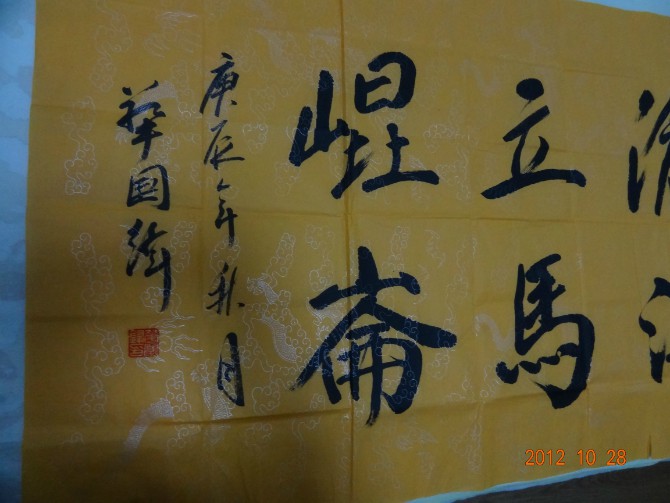 立馬
崐崙
庚辰年秋月
華國鋒
2012 10 28